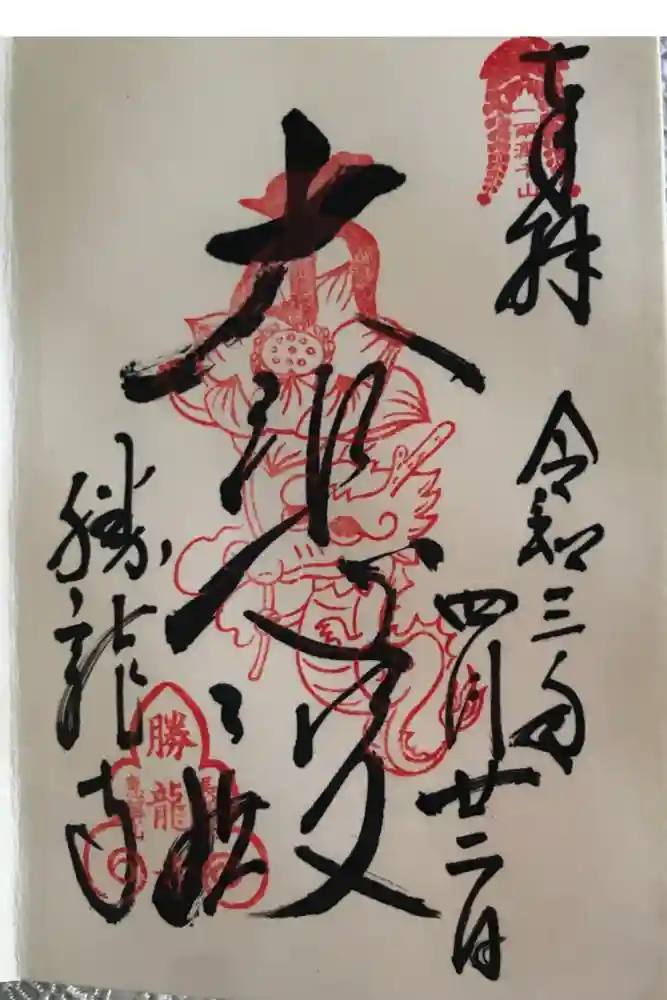 奉拝
令和三年
四月廿二日
大悲殿
勝龍寺
勝龍寺